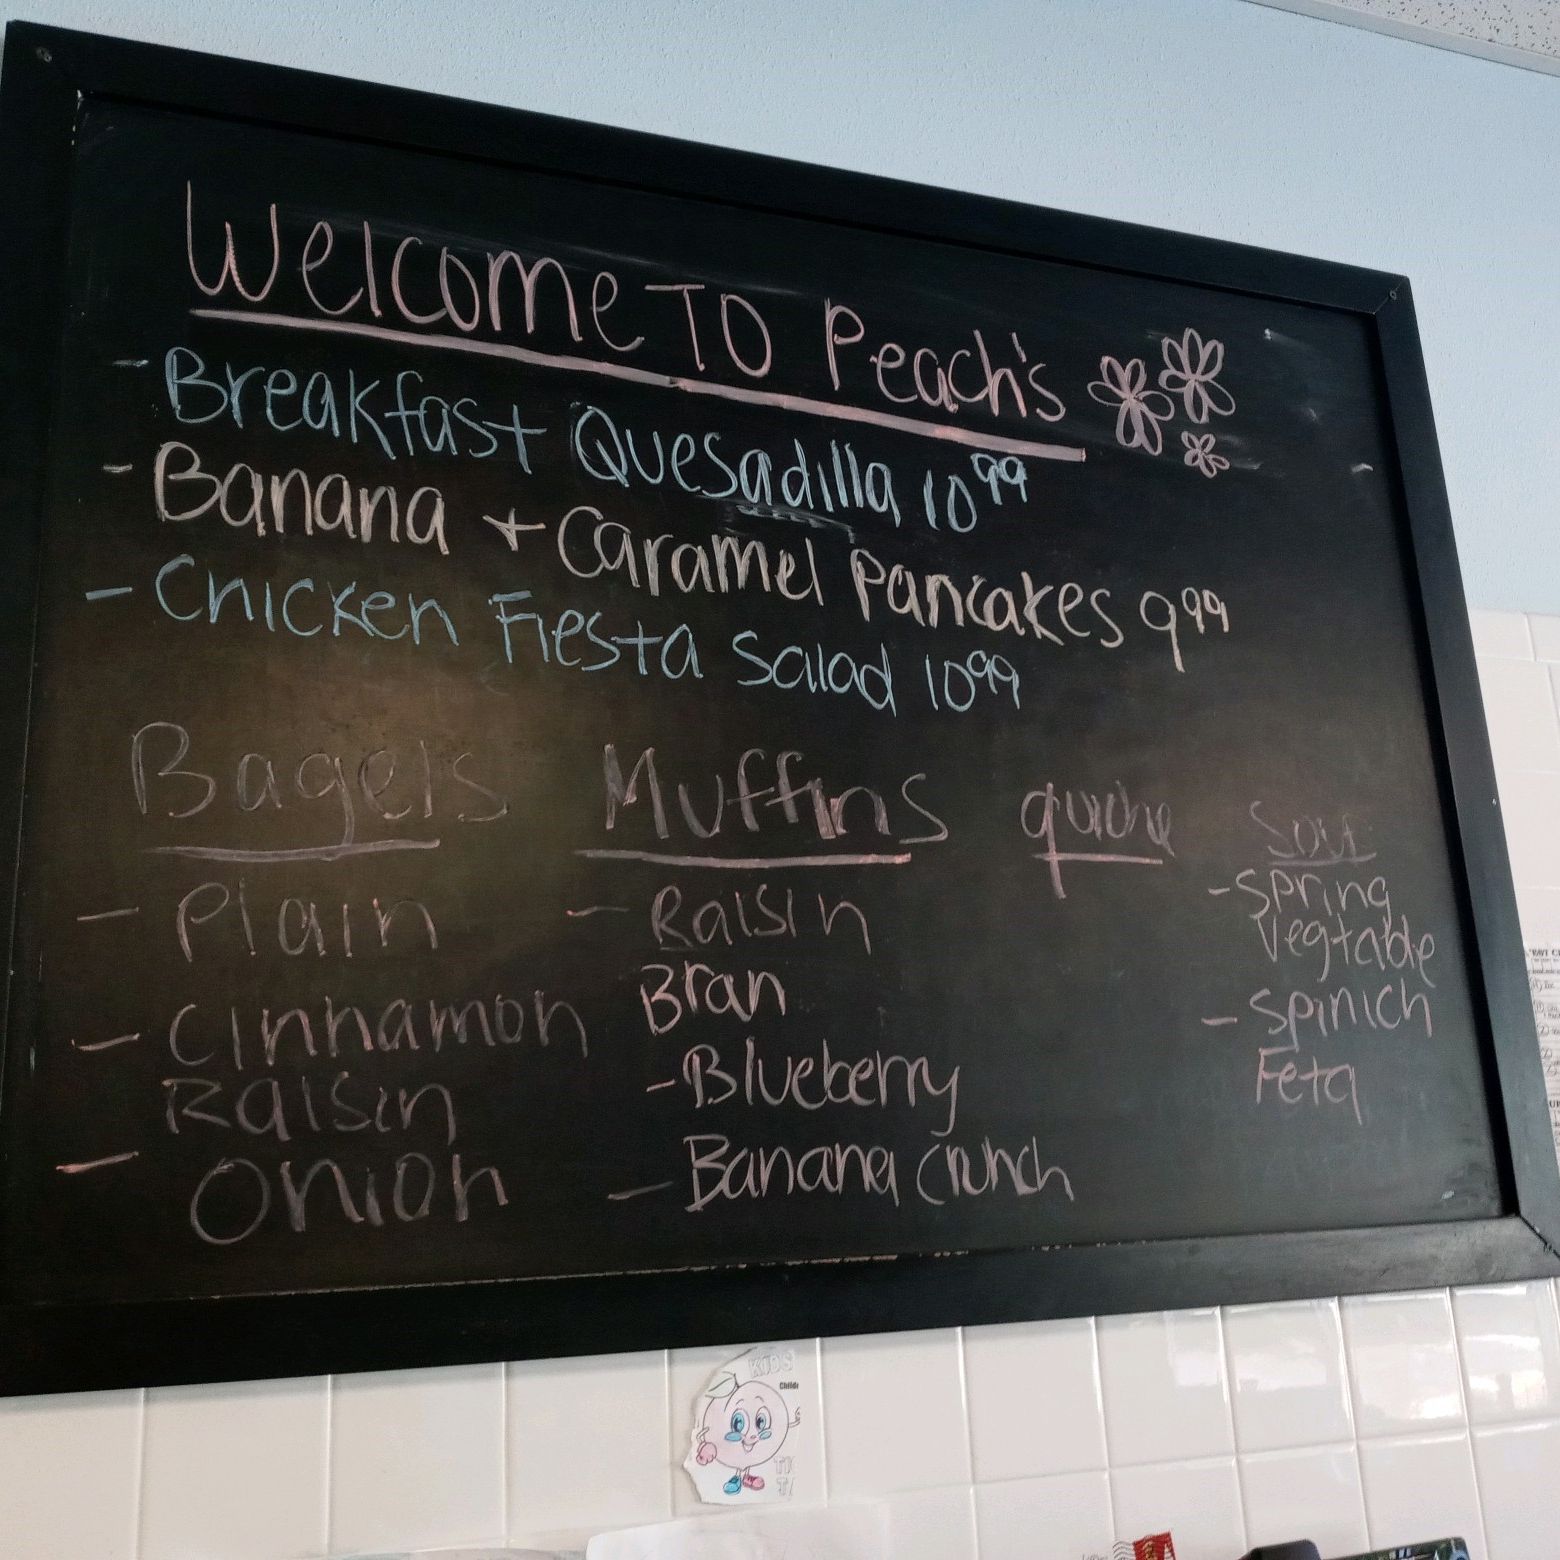 Welcome TO Peach's
- Breakfast Quesadilla 10 99
- Banana + Caramel Pancakes 9 99
- Chicken Fiesta Salad 10 99
Bagels
- Plain
- Cinnamon
Raisin
- Onion
Muffins
- Raisin
Bran
- Blueberry
- Banana Crunch
quiche
- Spring
Vegtable
- Spinich
Feta
KIDS